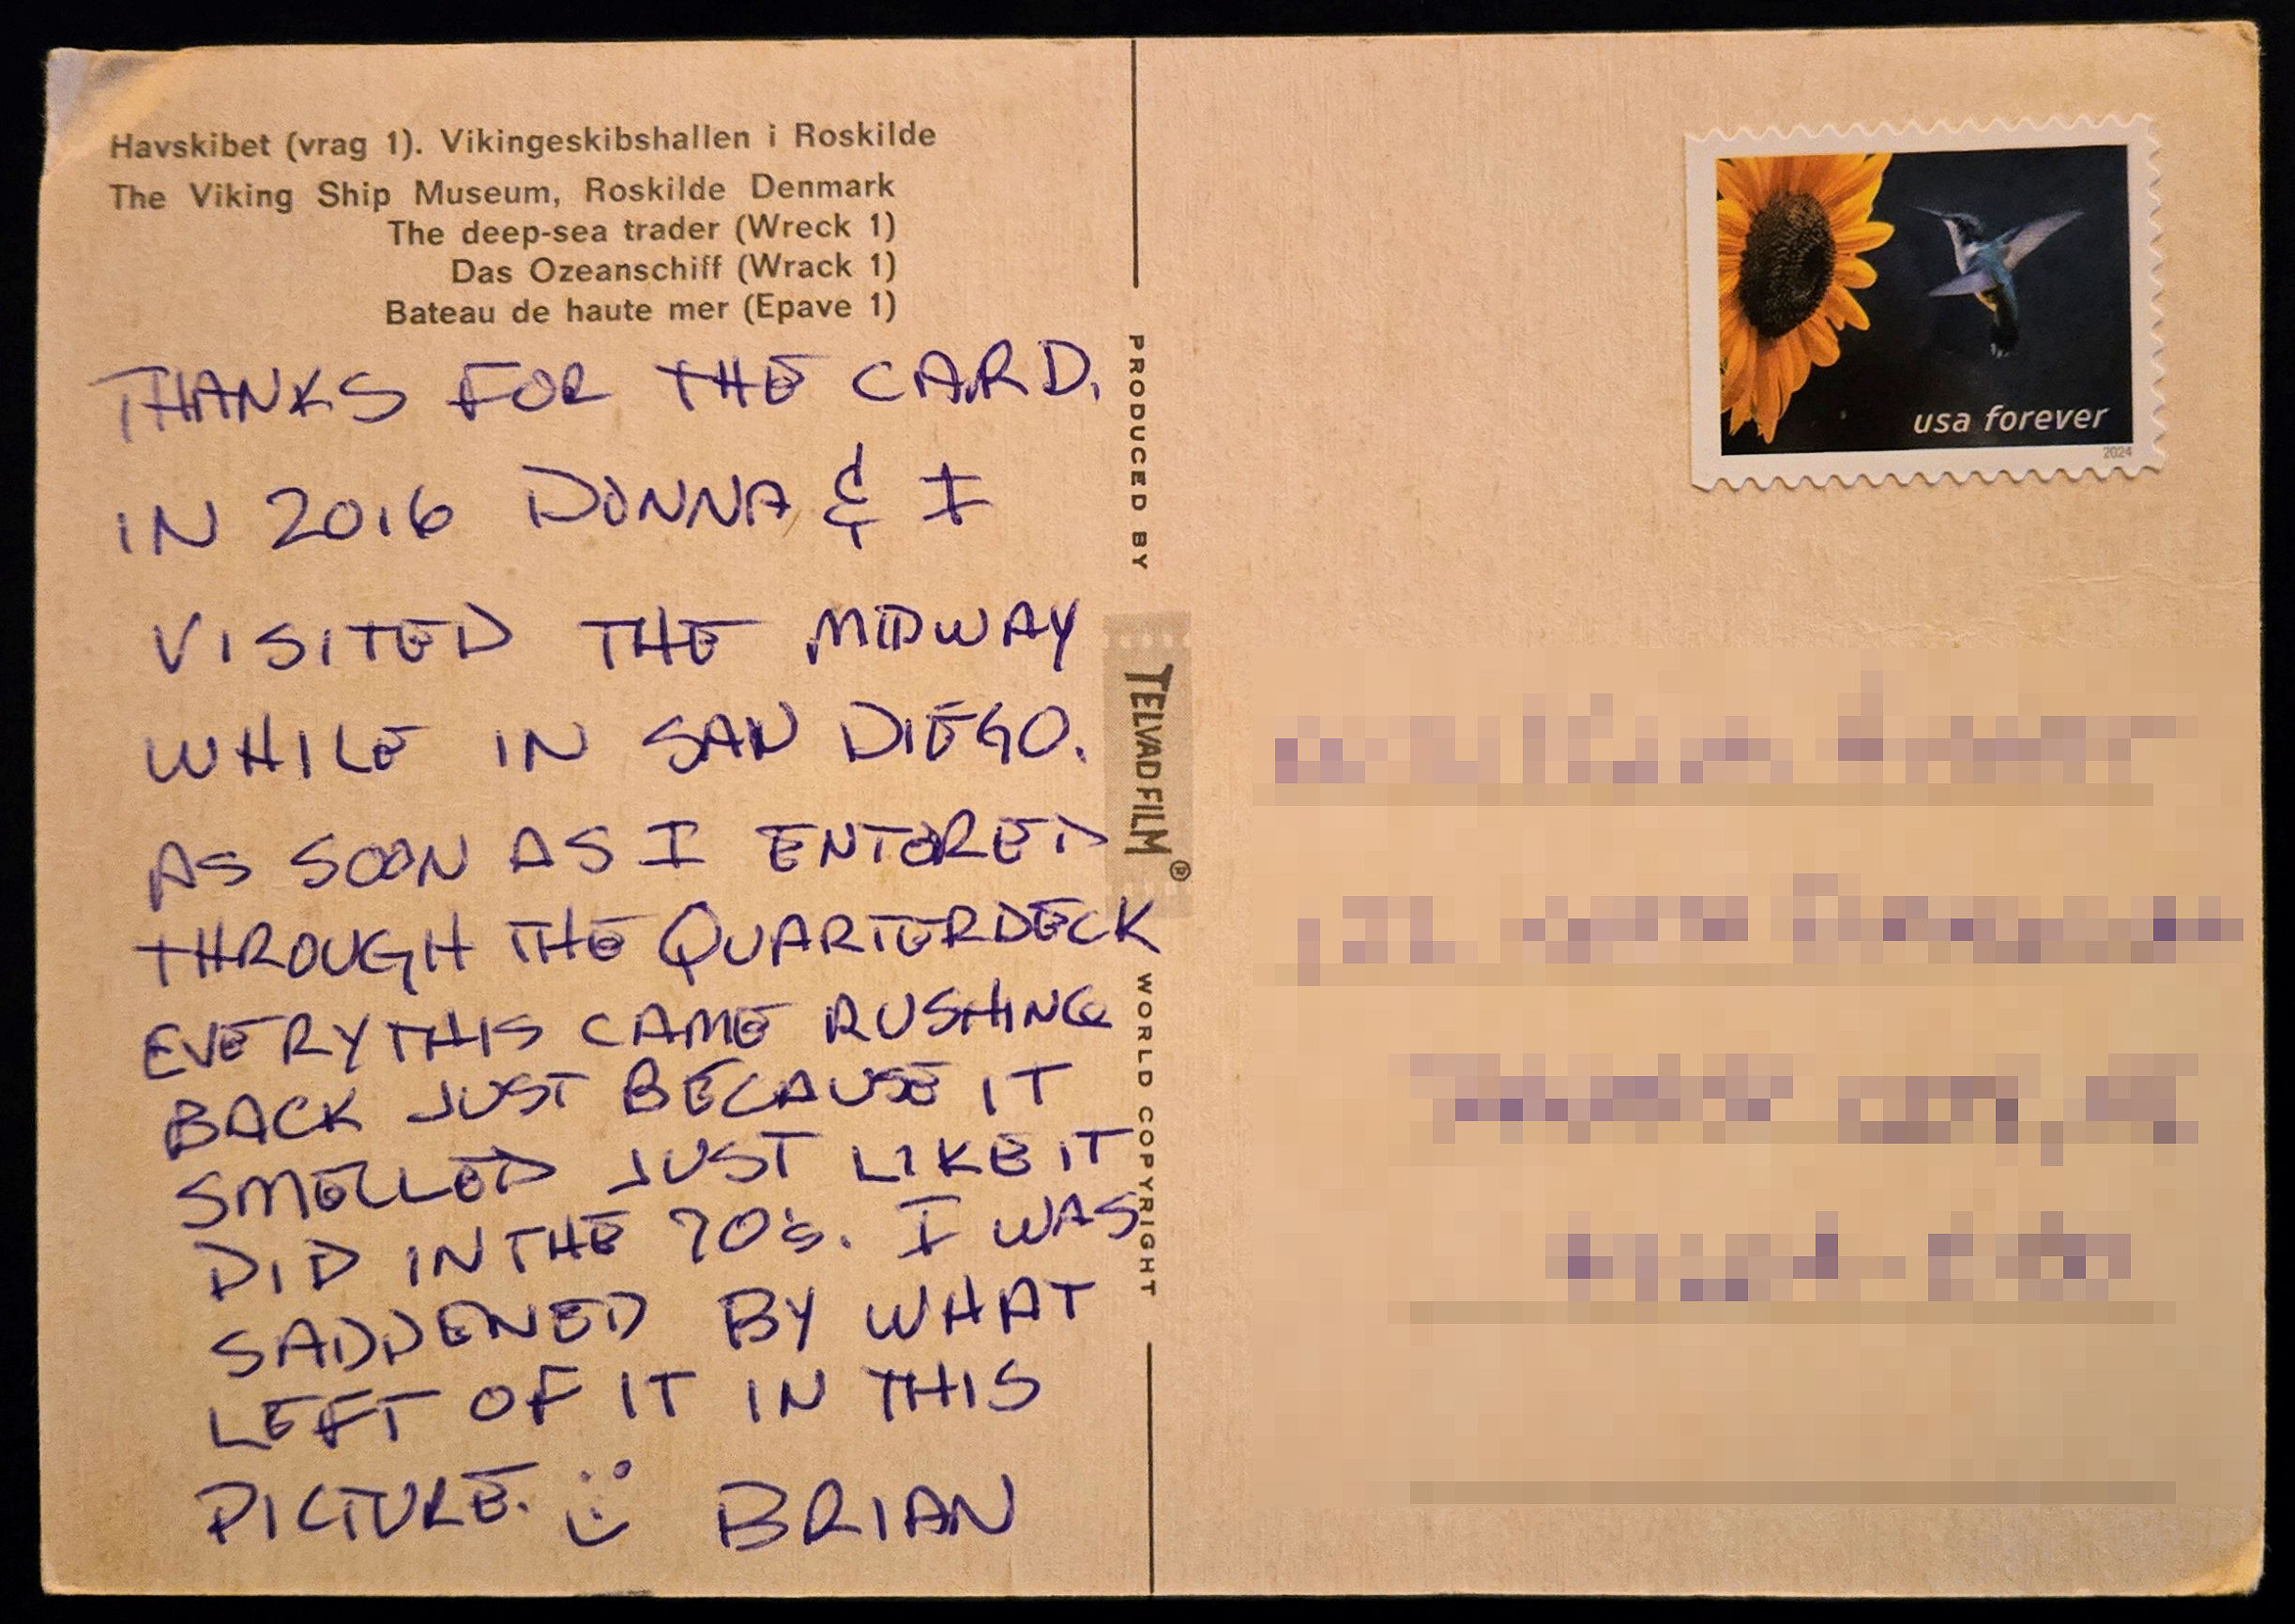 Havskibet (vrag 1). Vikingeskibshallen i Roskilde
The Viking Ship Museum, Roskilde Denmark
The deep-sea trader (Wreck 1)
Das Ozeanschiff (Wrack 1)
Bateau de haute mer (Epave 1)
THANKS FOR THE CARD.
IN 2016 DONNA & I
VISITED THE MIDWAY
WHILE IN SAN DIEGO.
AS SOON AS I ENTERED
THROUGH THE QUARTERDECK
EVERYTHIS CAME RUSHING
BACK JUST BECAUSE IT
SMELLED JUST LIKE IT
DID IN THE 70's. I WAS
SADDENED BY WHAT
LEFT OF IT IN THIS
PICTURE. BRIAN
PRODUCED BY
TELVADFILM®
WORLD COPYRIGHT
usa forever
2024